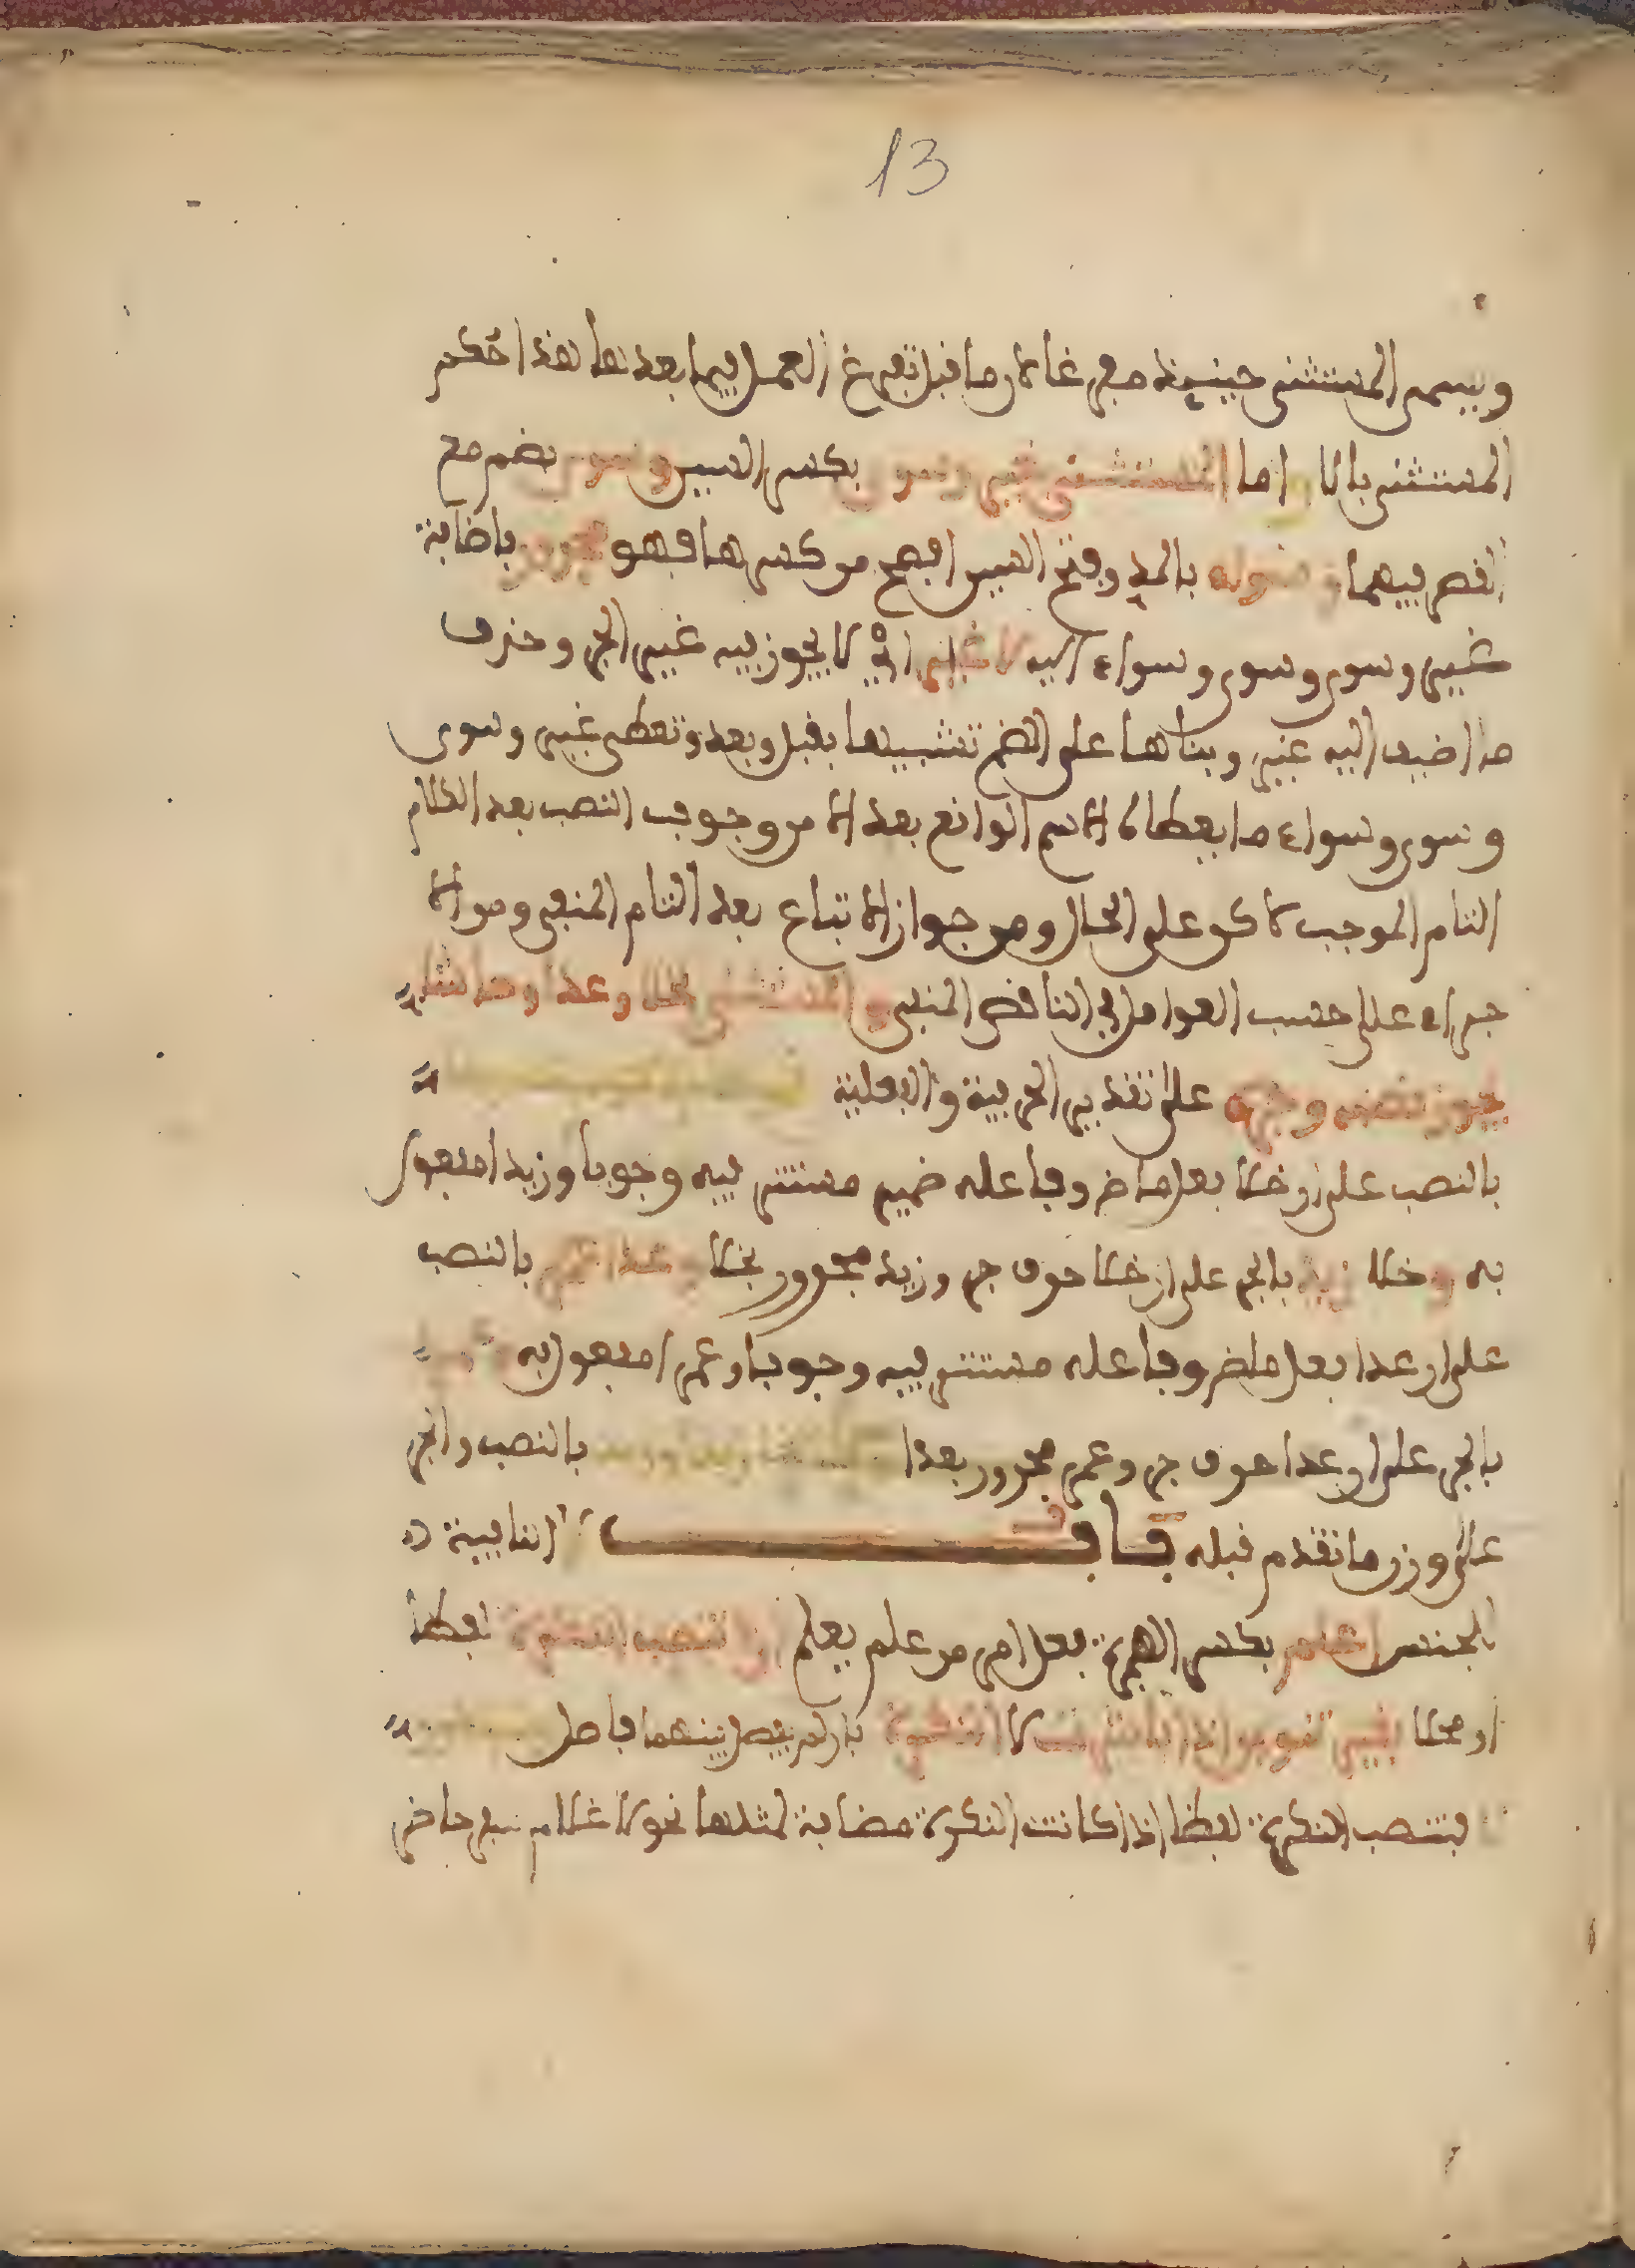 13
ويسمى المستثنى حينيذ مفرغا لان ما قبل تفرغ العمل فيما بعدها هذا حكم
المستثنى بالا واما المستثنى بغير وسوى بكسر السين وسوى بضم مع
القصر فيهما وسواء بالمد وفتح السين افصح من كسرها فهو مجرور باضافة
غير وسوى وسوى وسواء اليه لا غير اي لا يجوز فيه غير الجر وحذف
ما اضيف اليه غير وبناها على الضم تشبيها بقبل وبعد وتعطى غير وسوى
وسوى وسواء ما يعطاه الاسم الواقع بعد الا من وجوب النصب بعد الكلام
التام الموجب لاكن على الحال ومن جواز الاتباع بعد التام المنفي ومن الا
جراء على حسب العوامل في الناقص المنفي والمستثنى بخلا وعدا وحاشا
يجوز نصبه وجره على تقدير الحرفية والفعلية
بالنصب على ان خلا فعل ماض وفاعله ضمير مستتر فيه وجوبا وزيدا مفعول
به وخلا زيد بالجر على ان خلا حرف جر وزيد مجرور بخلا وعدا بالنصب
على ان عدا فعل ماض وفاعله مستتر فيه وجوبا وعمرا مفعول به
بالجر على ان عدا حرف جر وعمر مجرور بعدا بالنصب والجر
على وزن ما تقدم قبله باب النافية
للجنس اعلم بكسر الهمزة فعل امر من علم يعلم ان لا تنصب النكرة لفظا
او محلا بغير تنوين اذا باشرت لا النكرة بان لم يفصل بينهما فاصل
فتنصب النكرة لفظا اذا كانت النكرة مضافة لمثلها نحو لا غلام سفر حاضر